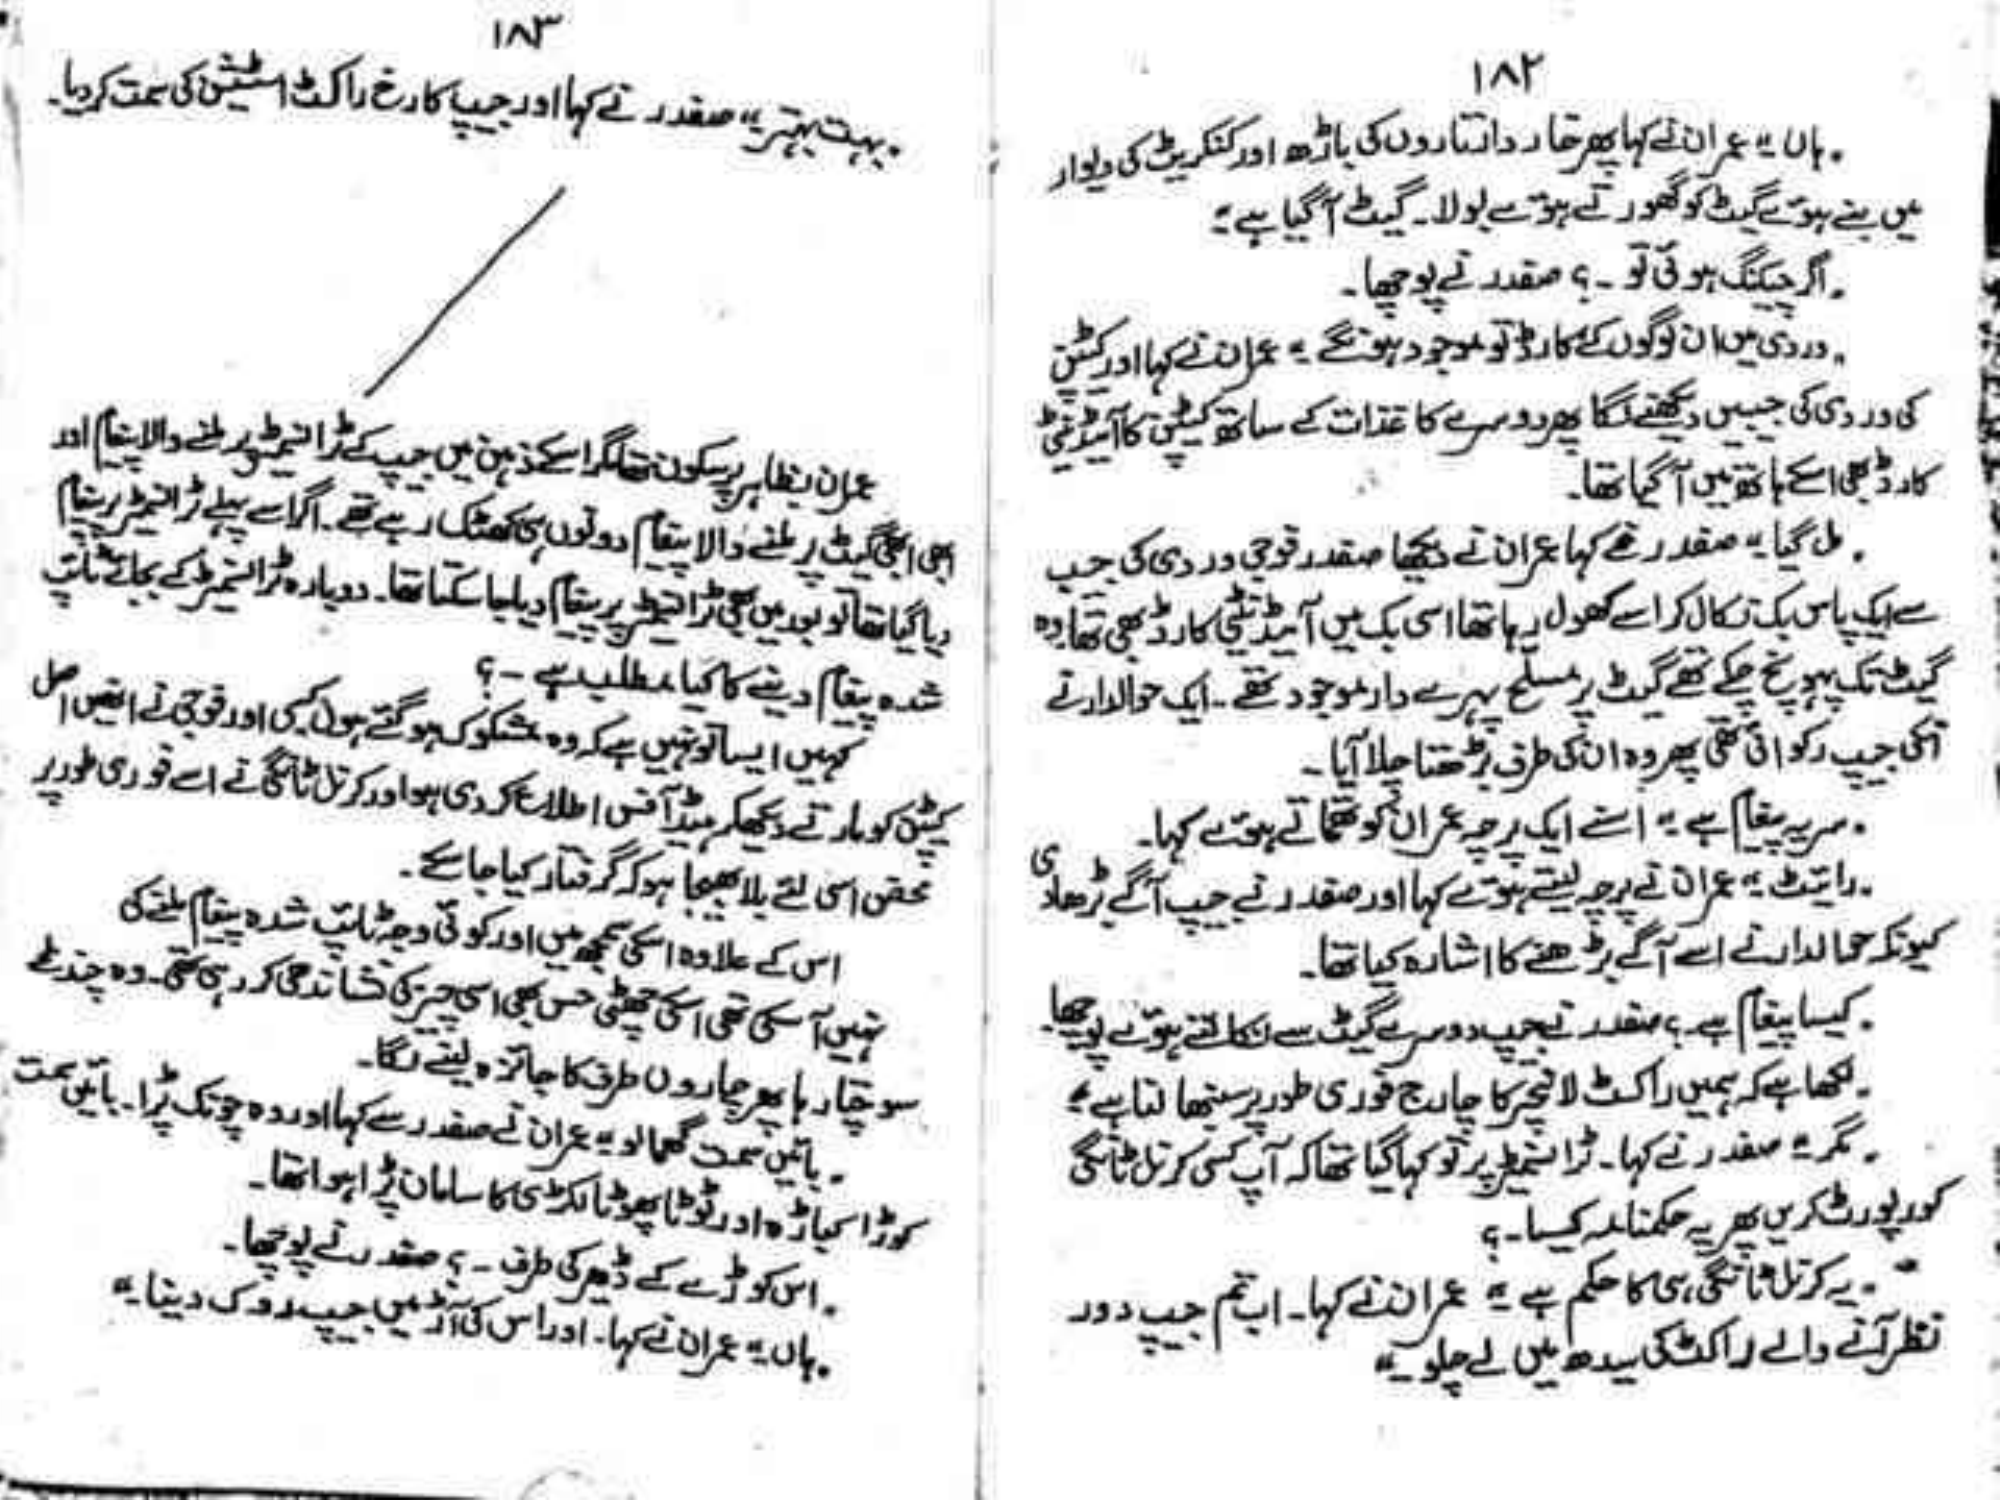 ۱۸۲
"ہاں" عمران نے کہا پھر خار دار تاروں کی باڑھ اور کنکریٹ کی دیوار
میں بنے ہوئے گیٹ کو گھورتے ہوئے بولا۔ گیٹ آگیا ہے"
"اگر چیکنگ ہوئی تو ۔؟ صفدر نے پوچھا۔
"وردی میں ان لوگوں کے کارڈ تو موجود ہونگے" عمران نے کہا اور کیپٹن
کی وردی کی جیبیں دیکھنے لگا پھر دوسرے کاغذات کے ساتھ کیپٹن کا آئیڈنٹی
کارڈ بھی اسکے ہاتھ میں آگیا تھا۔
"مل گیا" صفدر نے کہا عمران نے دیکھا صفدر فوجی وردی کی جیب
سے ایک پاس بک نکال کر اسے کھول رہا تھا اسی بک میں آئیڈنٹٹی کارڈ بھی تھا وہ
گیٹ تک پہونچ چکے تھے گیٹ پر مسلح پہرے دار موجود تھے۔ ایک حوالدار نے
آنکی جیپ رکوائی تھی پھر وہ ان کی طرف بڑھتا چلا آیا۔
"سر یہ پیغام ہے" اسنے ایک پرچہ عمران کو تھماتے ہوئے کہا۔
"رائیٹ" عمران نے پرچہ لیتے ہوئے کہا اور صفدر نے جیپ آگے بڑھادی
کیونکہ حوالدار نے اسے آگے بڑھنے کا اشارہ کیا تھا۔
"کیسا پیغام ہے؟ صفدر نے جیپ دوسرے گیٹ سے نکالتے ہوئے پوچھا۔
"لکھا ہے کہ ہمیں راکٹ لانچر کا چارج فوری طور پر سنبھالنا ہے"
"مگر" صفدر نے کہا۔ ٹرانسمیٹر پر تو کہا گیا تھا کہ آپ کسی کرنل ٹانگی
کو رپورٹ کریں پھر یہ حکمنامہ کیسا۔؟
"یہ کرنل ٹانگی ہی کا حکم ہے" عمران نے کہا۔ اب تم جیپ دور
نظر آنے والے راکٹ کی سیدھ میں لے چلو"
۱۸۳
"بہت بہتر" صفدر نے کہا اور جیپ کا رخ راکٹ اسٹیشن کی سمت کردیا۔
عمران بظاہر پرسکون تھا مگر اسکے ذہن میں جیپ کے ٹرانسمیٹر پر ملنے والا پیغام اور
ابھی ابھی گیٹ پر ملنے والا پیغام دونوں ہی کھٹک رہے تھے۔ اگر اسے پہلے ٹرانسمیٹر پر پیغام
دیا گیا تھا تو بعد میں بھی ٹرانسمیٹر پر پیغام دیا جا سکتا تھا۔ دوبارہ ٹرانسمیٹر کے بجائے ٹائپ
شدہ پیغام دینے کا کیا مطلب ہے ۔؟
کہیں ایسا تو نہیں ہے کہ وہ مشکوک ہوگئے ہوں کسی اور فوجی نے انھیں اصل
کیپٹن کو مارتے دیکھکر ہیڈ آفس اطلاع کردی ہو اور کرنل ٹانگی نے اسے فوری طور پر
محض اسی لئے بلا بھیجا ہو کہ گرفتار کیا جاسکے۔
اس کے علاوہ اسکی سمجھ میں اور کوئی وجہ ٹائپ شدہ پیغام ملنے کی
نہیں آسکی تھی اسکی چھٹی حس بھی اسی چیز کی نشاندھی کر رہی تھی۔ وہ چند لمحے
سوچتا رہا پھر چاروں طرف کا جائزہ لینے لگا۔
"بائیں سمت گھما لو" عمران نے صفدر سے کہا اور وہ چونک پڑا۔ بائیں سمت
کوڑا کباڑہ اور ٹوٹا پھوٹا لکڑی کا سامان پڑا ہوا تھا۔
"اس کوڑے کے ڈھیر کی طرف ۔؟ صفدر نے پوچھا۔
"ہاں" عمران نے کہا۔ اور اس کی آڑ میں جیپ روک دینا"